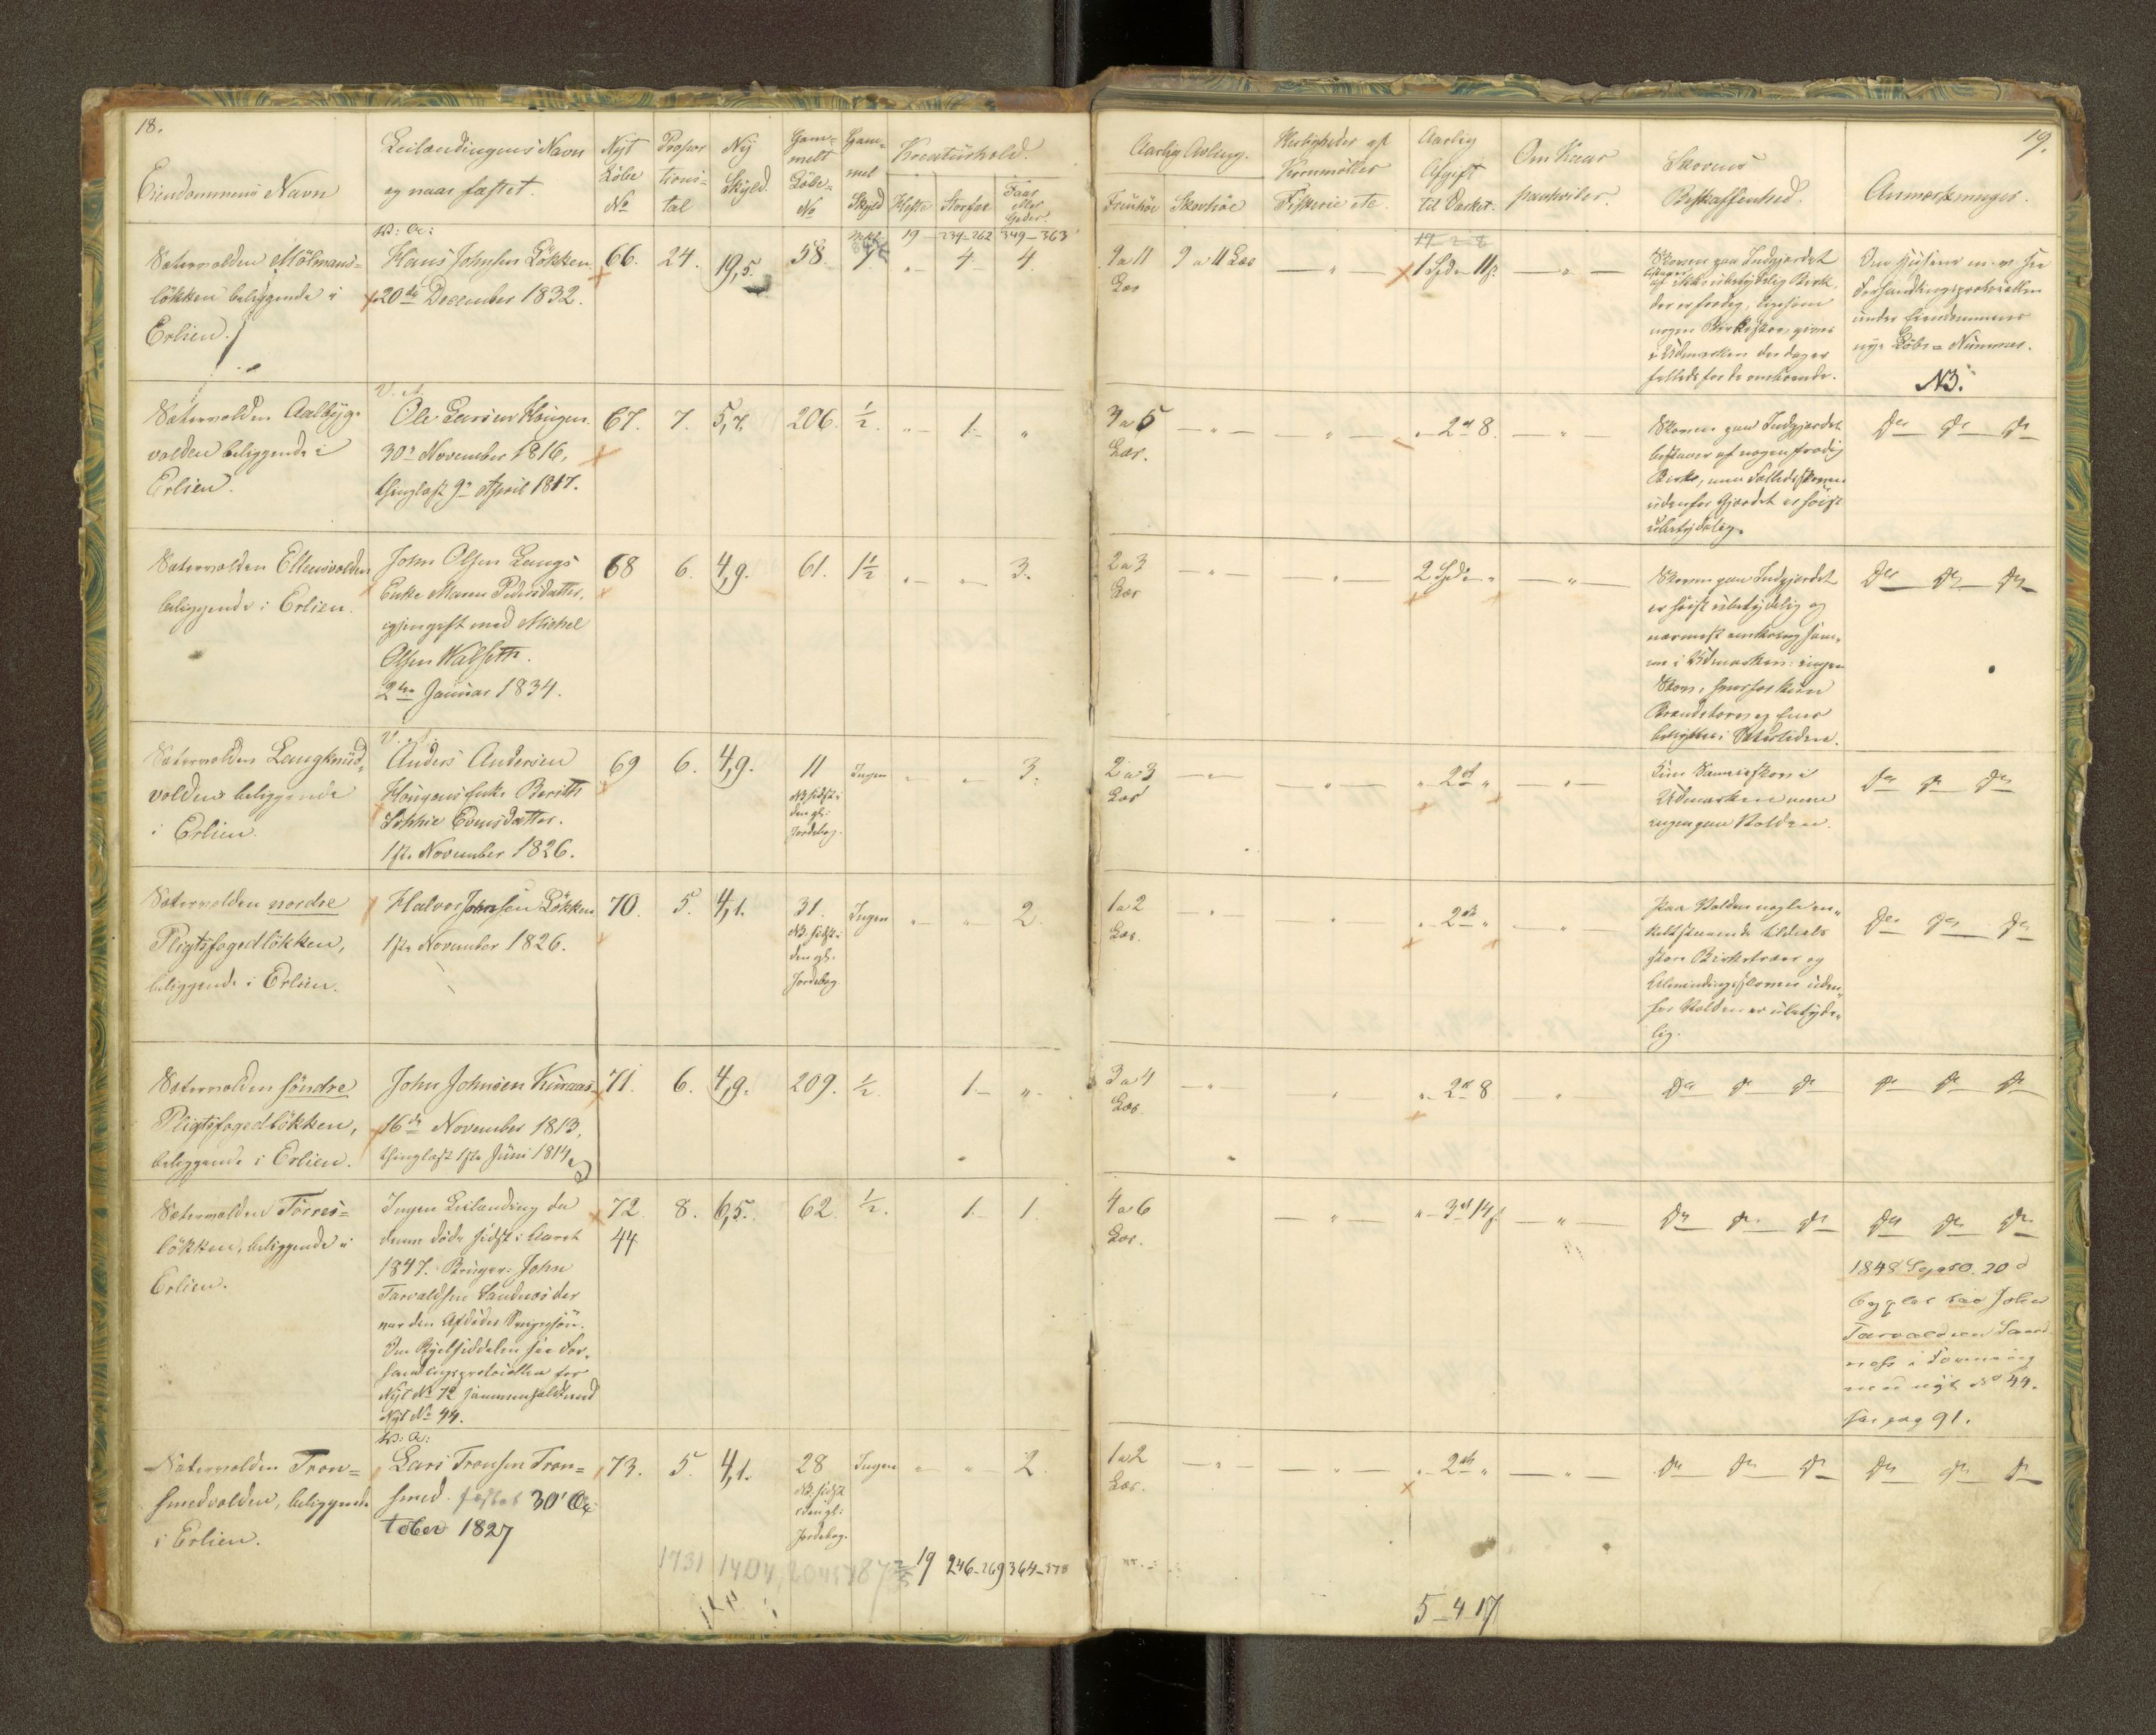 18.
Eiendommens Navn
Leilændingens Navn
og naar fæstet.
Nyt
Løbe
No
Propor
tions=
tal
Ny
Skyld.
Gam=
melt
Løbe=
No
Gam=
mel
Skyld
Kreaturhold.
Heste
Storfæe
Faar
eller
Geder.
19 - 234-262 349-363
Sætervolden Mölmans=
løkken beliggende i
Erlien.
Hans Johnsen Løkken
20de December 1832.
66.
24.
19,5.
58.
1.
"
4
4.
Sætervolden Aalbyg=
volden beliggende i
Erlien.
V. A.
Ole Larsen Hougen
30te November 1816,
thinglæst 9de April 1817.
67.
7.
5,7.
206.
½.
"
1.
"
Sætervolden Ellensvolden
beliggende i Erlien.
John Olsen Langs
Enke Maren Pedersdatter,
igjengift med Michel
Olsen Walseth.
2den Januar 1834.
68
6.
4,9.
61.
1½
"
"
3.
Sætervolden Langknud=
volden beliggende
i Erlien.
V. A.
Anders Andersen
Hougens Enke Berith
Sophie Evensdatter.
1ste November 1826.
69
6.
4,9.
11
NB. sidst i
den gl:
Jordebog.
Ingen
"
"
3.
Sætervolden nordre
Pligtsfogedløkken,
beliggende i Erlien.
Halvor Johnsen Løkken
1ste November 1826.
70.
5.
4,1.
31.
NB. sidst i
den gl.
Jordebog
Ingen
"
"
2.
Sætervolden søndre
Pligtsfogedløkken,
beliggende i Erlien.
John Johnsen Kuraas
16de November 1813,
thinglæst 1ste Juni 1814.
71.
6.
4,9.
209.
½.
1
"
Sætervolden Torres=
løkken, beliggende i
Erlien.
Ingen Leilænding da
denne døde sidst i Aaret
1847. Bruger: John
Tarvaldsen Sandnæs der
var den Afdødes Svigersøn.
Om Bygselseddelen see For=
handlingsprotocollen for
Nyt No 72 sammenholdt med
Nyt No 44.
72
44.
8.
6,5.
62.
½.
1
1.
Sætervolden Tron=
smedvolden, beliggende
i Erlien.
Lars Tronsen Tron=
smed. fæstet 30' Oc
tober 1827
73.
5.
4,1.
28
NB. sidst
i den gl:
Jordebog.
Ingen
"
"
2.
1731
1404
19
246-269
364-378
19.
Aarlig Avling.
Fruehøe
Skovhøe
Herligheder af
Kornmøller
Fiskerie etc.
Aarlig
Afgift
til Værket.
Om Kaar
paahviler.
Skovens
Beskaffenhed.
Anmærkninger.
9 a 11
Læs
9 a 11 Læs
"
1 Spd. " 11 ß
"
Skoven paa Indgjerdet
af ikke ubetydelig Birk,
der er frodig, ligesom
nogen Birkeskov gives
i Udmarken der dog er
fælleds for de omboende.
Om Husene m. v. see
Forhandlingsprotocollen
under Eiendommens
nye Løbe=Nummer.
NB.
3 a 5
Læs.
"
"
" 2 8.
"
Skoven paa Indgjerdet
bestaaer af nogen frodig
Birke, men Fælledsskoven
udenfor Gjerdet er høist
ubetydelig.
Do Do Do
2 a 3
Læs
"
"
2 Spd. "
"
Skoven paa Indgjerdet
er høist ubetydelig og
nærmest omkring sam=
me i Udmarken: ingen
Skov, hvorfor kun
Brændetorv og Ener
benyttes i Sætertiden.
Do Do Do
2 a 3
Læs
"
"
" 2 "
"
Liden Sameieskov i
Udmarken men
ingen paa Volden.
Do Do Do
1 a 2
Læs.
"
"
" 2 "
"
Paa Volden nogle en=
kelt staaende tildeels
store Birketræer og
Almindingsskoven uden=
for Volden er ubetyde=
lig.
Do Do Do
3 a 4
Læs.
"
"
" 2 8
"
Do Do Do
Do Do Do
4 a 6
Læs.
"
" 3 14 ß
"
Do Do Do
Do Do Do
1848 Septbr. 20d
bygslet til John
Tarvaldsen Sand
næss i Forening
med nyt No 44.
See pag 91.
1 a 2
Læs.
"
"
" 2 "
"
Do Do Do
Do Do Do
5-4-17